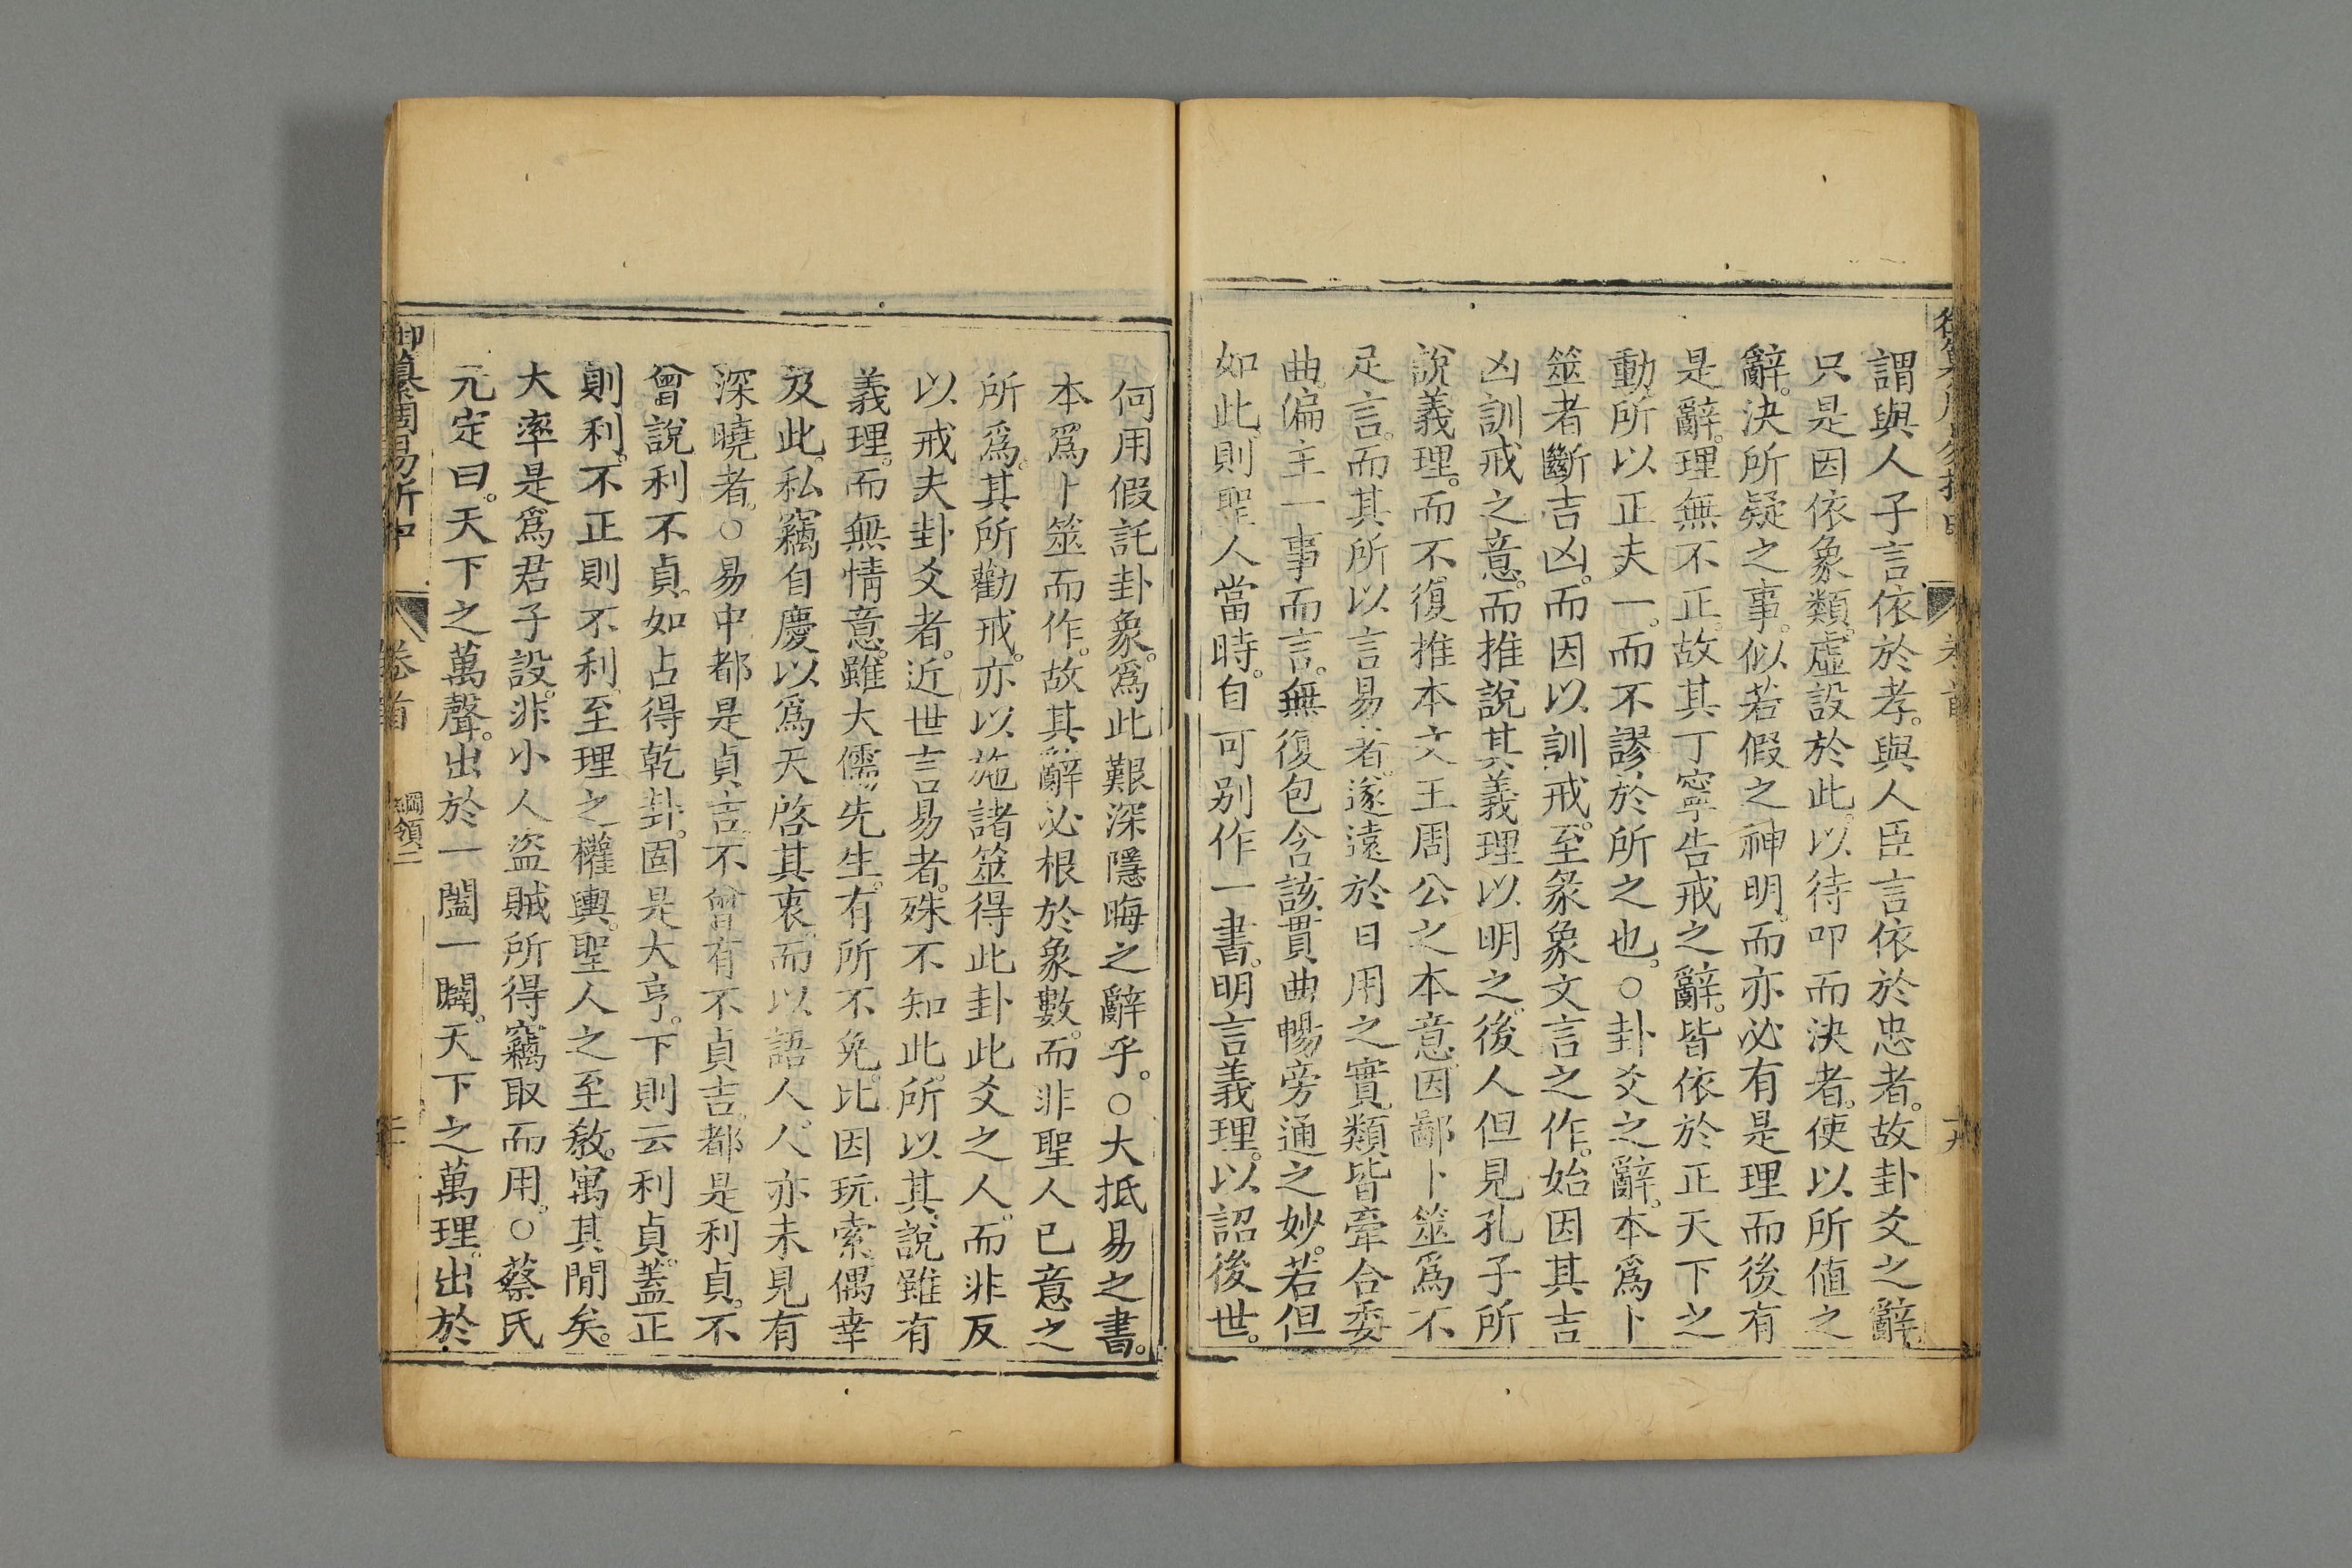 謂與人子言依於孝。與人臣言依於忠者。故卦爻之辭。
只是因依象類。虛設於此。以待叩而決者。使以所値之
辭。決所疑之事。似若假之神明。而亦必有是理而後有
是辭。理無不正。故其丁寧告戒之辭。皆依於正天下之
動。所以正夫一。而不謬於所之也。○卦爻之辭。本爲卜
筮者斷吉凶。而因以訓戒。至彖象文言之作。始因其吉
凶訓戒之意。而推說其義理以明之。後人但見孔子所
說義理。而不復推本文王周公之本意。因鄙卜筮爲不
足言。而其所以言易者。遂遠於日用之實。類皆牽合委
曲。偏主一事而言。無復包含該貫曲暢旁通之妙。若但
如此。則聖人當時。自可別作一書。明言義理。以詔後世。
何用假託卦象。爲此艱深隱晦之辭乎。○大抵易之書。
本爲卜筮而作。故其辭必根於象數。而非聖人已意之
所爲。其所勸戒。亦以施諸筮得此卦此爻之人。而非反
以戒夫卦爻者。近世言易者。殊不知此。所以其說雖有
義理。而無情意。雖大儒先生。有所不免。比因玩索。偶幸
及此。私竊自慶以爲天啓其衷。而以語人。人亦未見有
深曉者。○易中都是貞言。不曾有不貞吉。都是利貞。不
曾說利不貞。如占得乾卦。固是大亨。下則云利貞。蓋正
則利。不正則不利至理之權輿。聖人之至教。寓其閒矣。
大率是爲君子設。非小人盜賊所得竊取而用。○蔡氏
元定曰。天下之萬聲。出於一闔一闢。天下之萬理。出於
御纂周易折中
卷首
綱領二